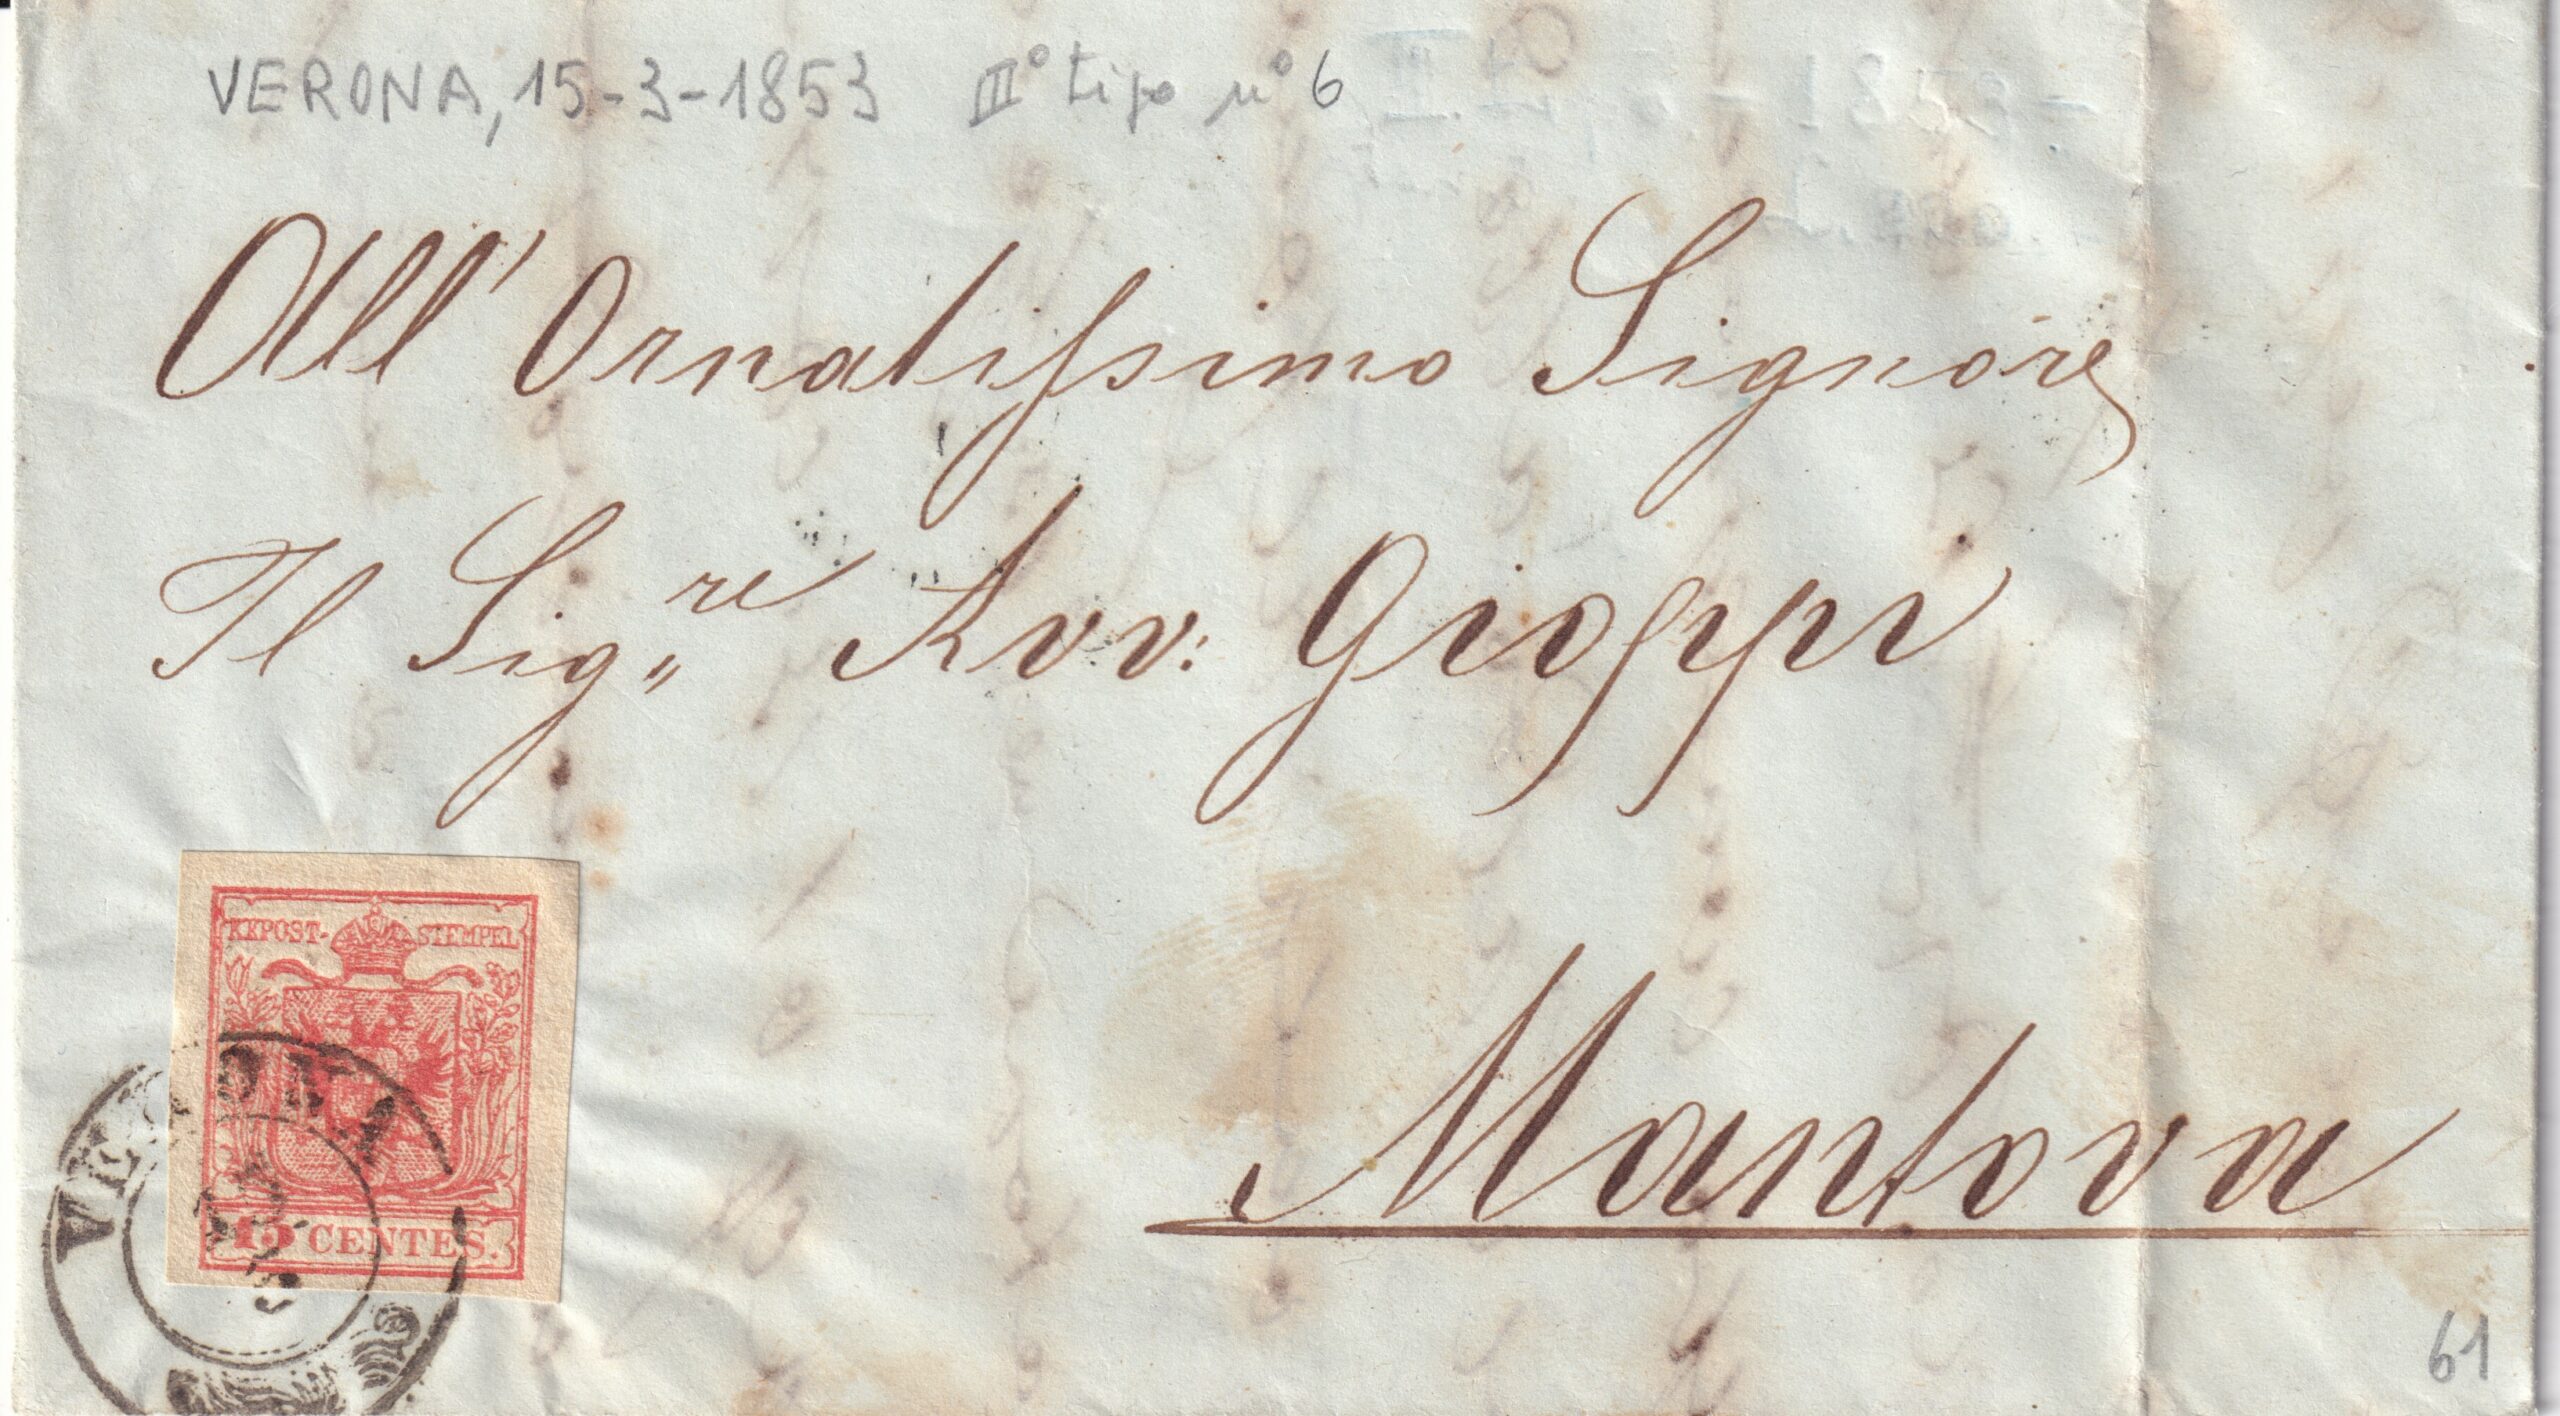 VERONA, 15-3-1853 III° tipo n° 6
All' Ornatissimo Signore
Il Sig.re Avv: Gioppi
Mantova
KKPOST-STEMPEL
VERONA
15 CENTES.
61